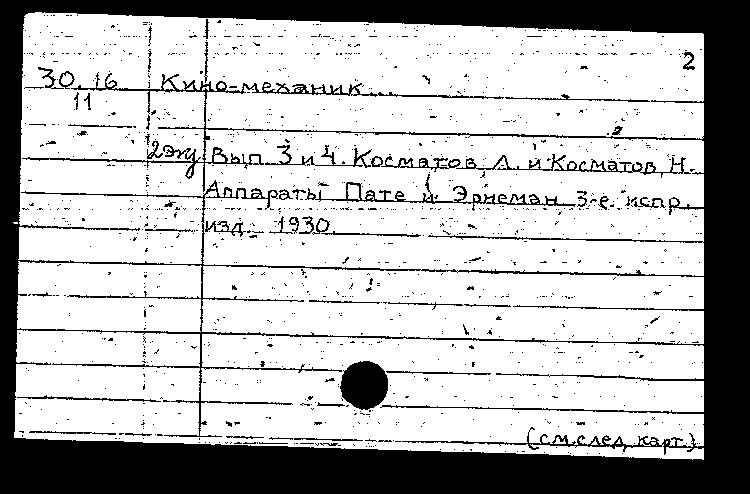 2
30.16 Кино-механик...
11
2экз Вып. 3 и 4. Косматов, Л. и Косматов, Н.
Аппараты Пате и Эрнеман 3-е испр.
изд. 1930.
(см.след. карт.)